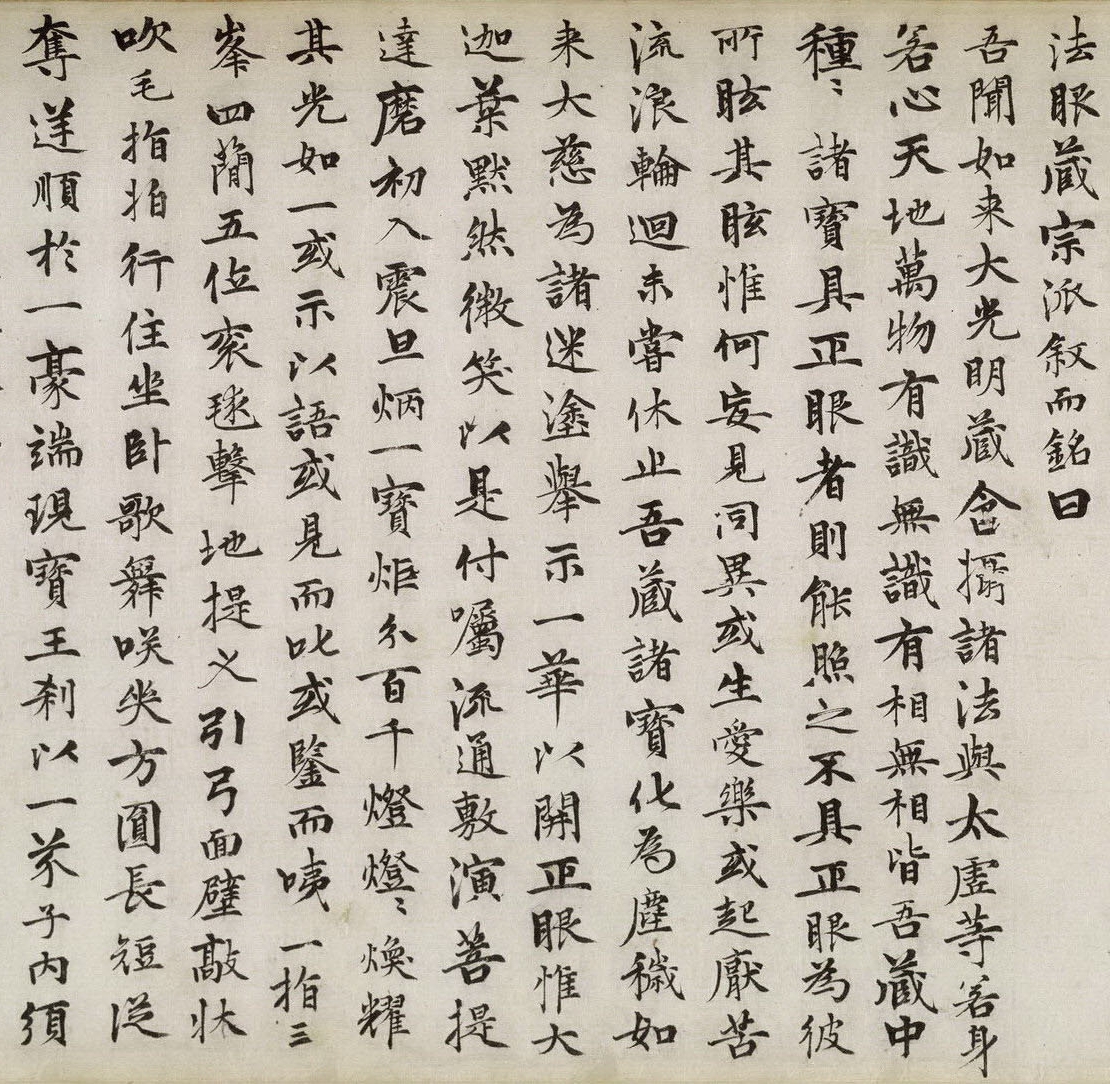 法眼蔵宗派叙而銘曰
吾聞如来大光明蔵含攝諸法與太虛等若身
若心天地萬物有識無識有相無相皆吾蔵中
種〻諸寶具正眼者則能照之不具正眼為彼
所眩其眩惟何妄見同異或生愛樂或起厭苦
流浪輪迴未嘗休止吾蔵諸寶化為塵穢如
来大慈為諸迷塗舉示一華以開正眼惟大
迦葉默然微笑以是付囑流通敷演菩提
達磨初入震旦炳一寶炬分百千燈燈〻煥耀
其光如一或示以語或見而叱或鑒而咦一指三
峯四蕳五位衮毬擊地提义引弓面壁敲牀
吹毛指拍行住坐卧歌舞咲哭方圓長短従
奪逆順於一豪端現寶王刹以一芥子内須